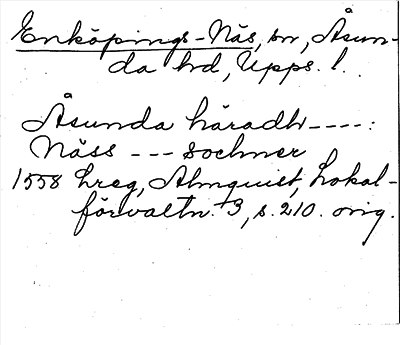 Enköpings-Näs, sn, Åsun-
da hd, Upps. l.
Åsunda häradh ----:
Näss --- sochner
1558 Lreg, Almquist, Lokal-
förvaltn. 3, s. 210. orig.